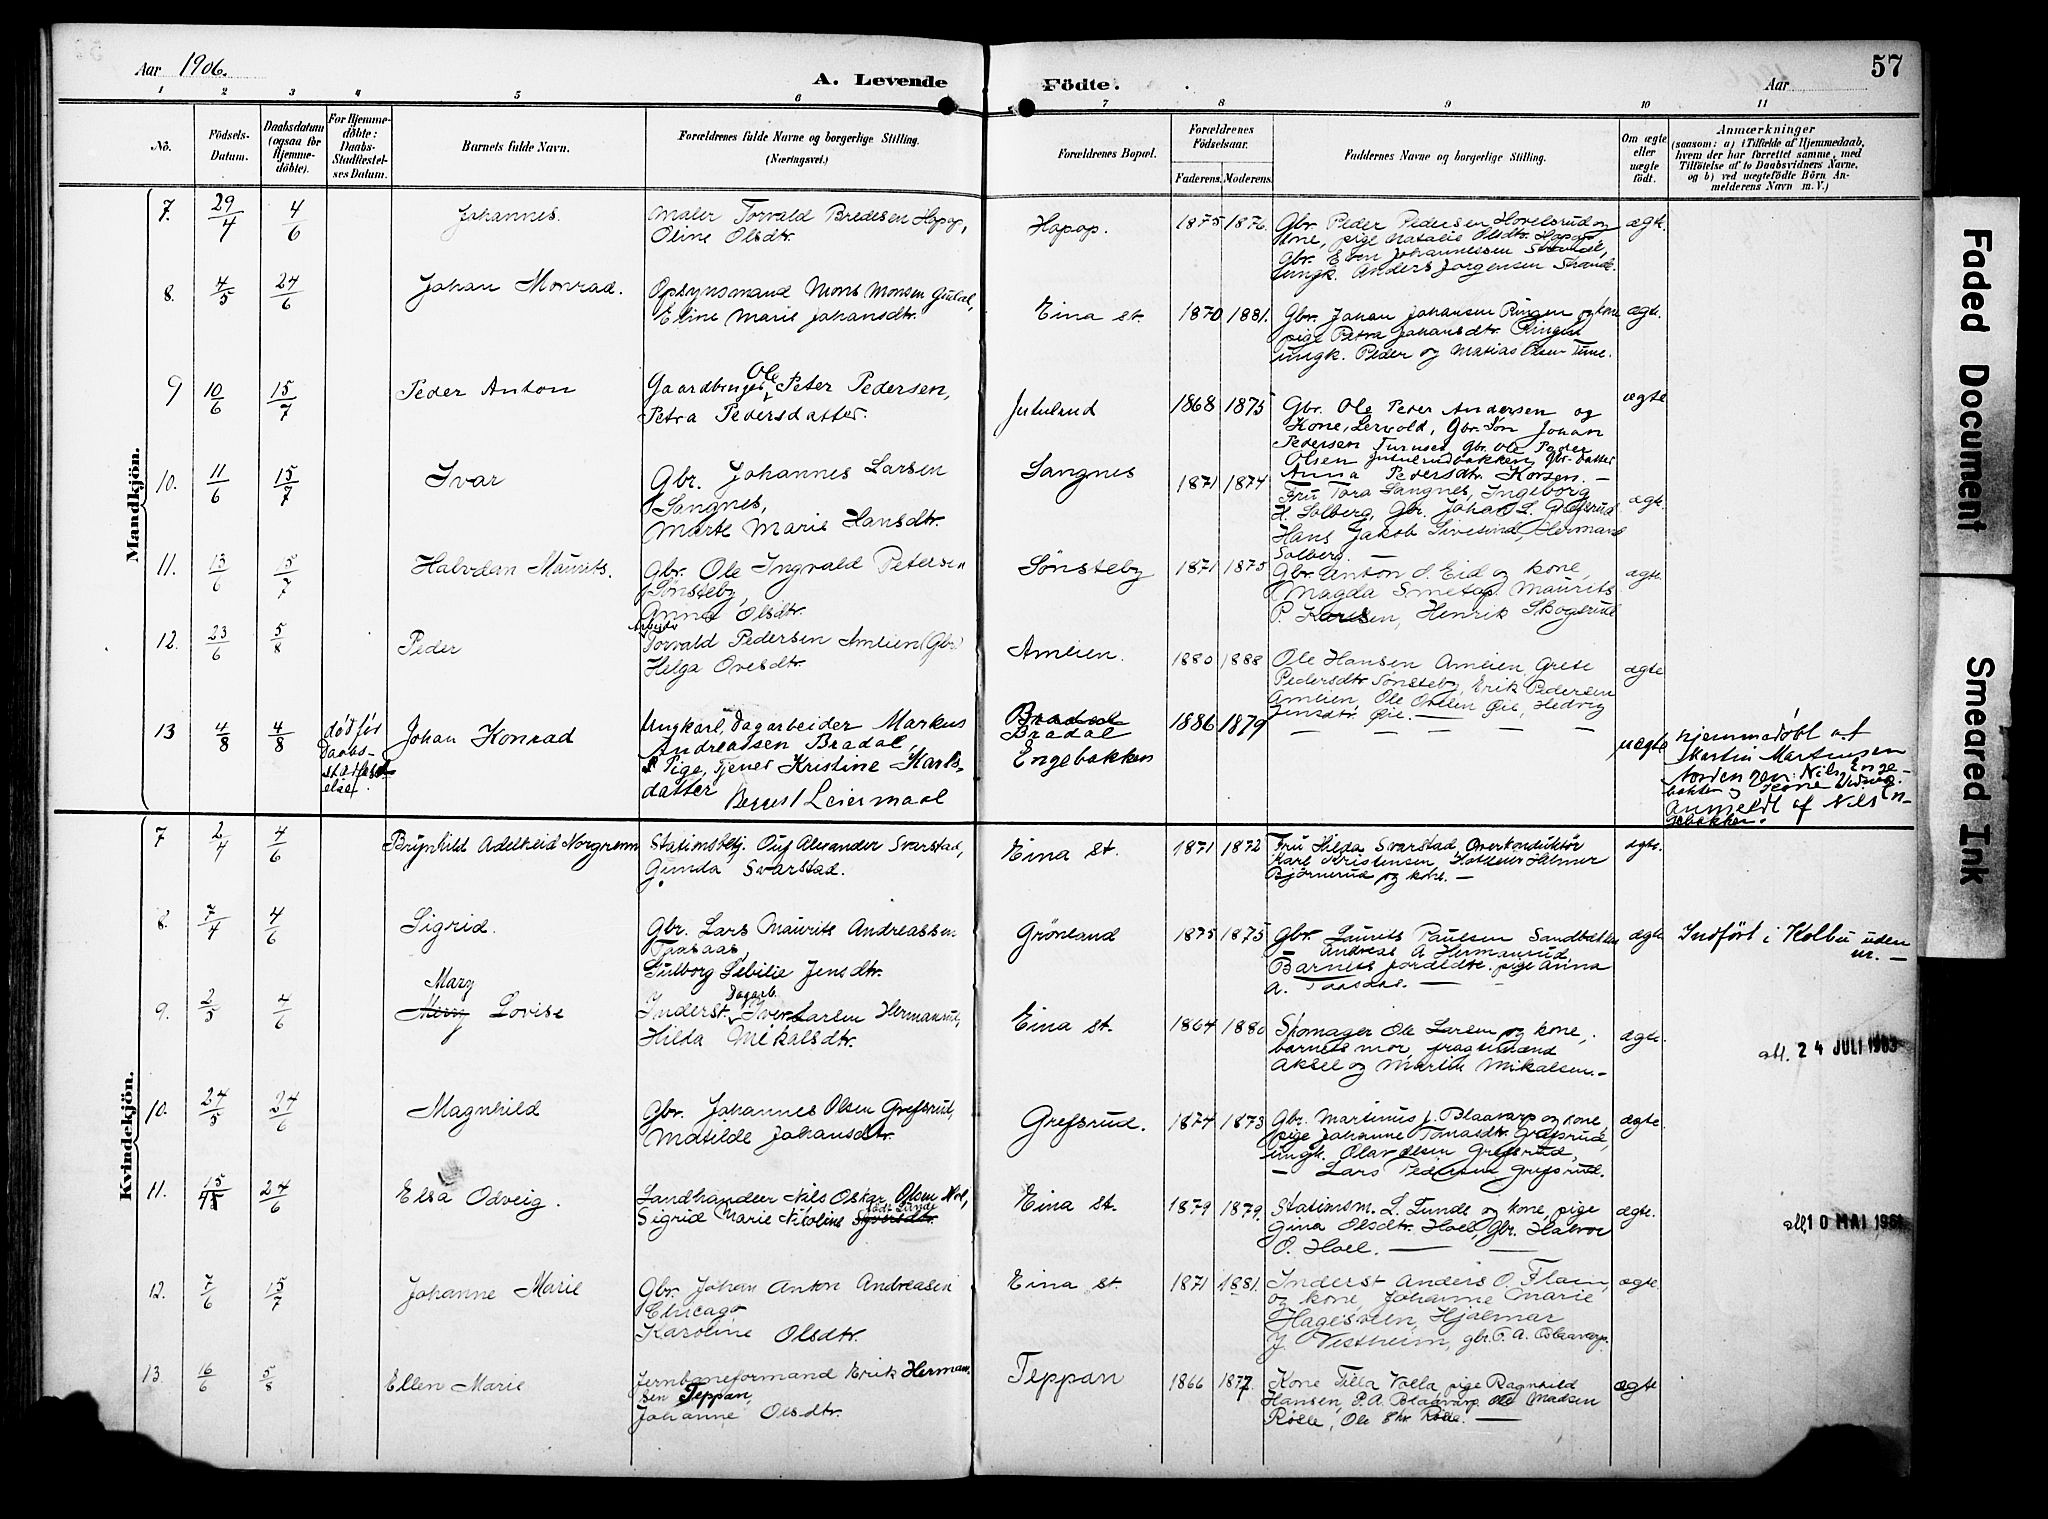 Aar 1906.
A. Levende Födte.
Aar
57
1 2 3 4 5 6 7 8 9 10 11
No.
Födsels-Datum.
Daabsdatum (ogsaa for Hjemme-döbte).
For Hjemme-döbte: Daabs-Stadfæstel-ses Datum.
Barnets fulde Navn.
Forældrenes fulde Navne og borgerlige Stilling. (Næringsvei.)
Forældrenes Bopæl.
Forældrenes Födselsaar.
Faderens. Moderens.
Faddernes Navne og borgerlige Stilling.
Om ægte eller uægte födt.
Anmærkninger
(saasom: a) i Tilfælde af Hjemmedaab, hvem der har forrettet samme, med Tilföielse af to Daabsvidners Navne, og b) ved uægtefödte Börn An-melderens Navn m. V.)
Mandkjön.
7. 29/4 4/6 Johannes. Maler Torvald Bredesen Hopop, Oline Olsdtr. Hopop. 1875 1876. Gbr. Peder Pedersen Hovelsrud og kone, pige Natalie Olsdtr. Hopop, Gbr. Even Johannessen Strande, ungk. Anders Jørgensen Strande. ægt.
8. 4/5 24/6 Johan Monrad. Opsynsmand Mons Monsen, Eline Marie Johansdtr. Eina st. 1870 1881. Gbr. Johan Johansen Ringen og kone pige Petra Johansdtr. Ringen ungk. Peder og Matias Olsen ægte.
9 10/6 15/7 Peder Anton Gaardbruger Ole Peter Pedersen, Petra Pedersdatter. Jutulud 1868 1875 Gbr. Ole Peter Andersen og Kone, Lervold, Gbr. Søn Johan Pedersen Gbr. Ole Peder Olsen Jutulrudbakken, Gbr. datter Anna Pedersdtr. Korsen. — ægte
10. 11/6 15/7 Ivar Gbr. Johannes Larsen Sangnes, Marte Marie Hansdtr. Sangnes 1871 1874 Fru Tora Sangnes, Ingeborg H. Solberg, Gbr. Johan L. Grefsrud Hans Jakob Sivesind, Hermand Solberg. — ægt.
11. 13/6 15/7 Halvdan Maurits. Gbr. Ole Ingvald Petersen Sønsteby, Anna Olsdtr. Sønsteby 1871 1875 Gbr. Anton S. Eid og kone, Magda Smetop, Maurits P. Karlsen, Henrik Skogsrud ægte.
12. 23/6 5/8 Peder Arbeider Torvald Pedersen Amlien (Gbr) Helga Ovesdtr. Amlien. 1880 1888 Ole Hansen Amlien, Grete Pedersdtr. Sønsteby, Erik Pedersen Amlien, Ole Ovesen Øie, Hedvig Jensdtr. Øie. — ægte
13 4/8 4/8 død før Daabs-stadfæst-else. Johan Konrad Ungkarl, Dagarbeider Markus Andreassen Bradal, Pige, Tjener Kristine Karls-datter Begges 1 Leiermaal Bradal Bradal Engebakken 1886 1879 — uægte hjemmedøbt af Martin Martinsen Norden gen: Nils Enge-bakken og kone Anmeldt af Nils En-gebakken.
Kvindekjön.
7 2/4 4/6 Brynhild Adelheid Norgrenn Stationsbetj. Oluf Alexander Svarstad, Gunda Svarstad. Eina st. 1871 1872 Fru Hilda Svarstad Overkonduktør Karl Kristensen, Hotteier Hilmar Bjørnerud og kone. — ægte.
8. 7/4 4/6 Sigrid. Gbr. Lars Maurits Andreassen Taasaas, Gulborg Sebilie Jensdtr. Grønland 1875 1875 Gbr. Laurits Paulsen Sandbakken Andreas A Hermanrud, Barnets forældre. pige Anna A. Taasaas. — ægte Indført i Kolbu uden nr. —
9. 2/5 4/6 Mary Merry Lovise Inderst, Dagarb. Iver Larsen Hermanrud, Hilda Mikalsdtr. Eina st. 1864 1880 Skomager Ole Larsen og kone, barnets mor, fragtmænd Aksel og Martin Mikalsen. — ægte. att. 24 JULI 1963
10. 24/5 24/6 Magnhild Gbr. Johannes Olsen Grefsrud, Matilde Johansdtr. Grefsrud. 1874 1873 Gbr. Martinus J. Blaavarp og kone, pige Johanne Tomasdtr. Grefsrud, ungk. Olav Olsen Grefsrud, — Lars Pedersen Grefsrud. ægte.
11. 15/5 24/6 Elsa Odveig. Landhandler Nils Oskar Olsen Hoel, Sigrid Marie Nicoline født Lunde Syversdtr. Eina st. 1879 1879. Stationsm. L. Lunde og kone, pige Gina Olsdtr. Hoel, Gbr. Halvor O. Hoel. — ægte. att. 10 MAI 1961
12. 7/6 15/7 Johanne Marie Gbr. Johan Anton Andreasen Chicago Karoline Olsdtr. Eina st. 1871 1881. Inderst Anders O. Flaen, og kone, Johanne Marie Hagesveen, Hjalmar J. Vestheim, gbr. P. A. Blaavarp. ægte.
13 16/6 5/8 Ellen Marie Jernbaneformand Erik Herman-sen Teppan, Johanne Olsdtr. Teppan 1866 1877. Kone Tilla Volla, pige Ragnhild Hansen, P. A. Blaavarp, Ole Madsen Røise, Ole Chr. Røise. — ægte
Faded Document
Smeared Ink